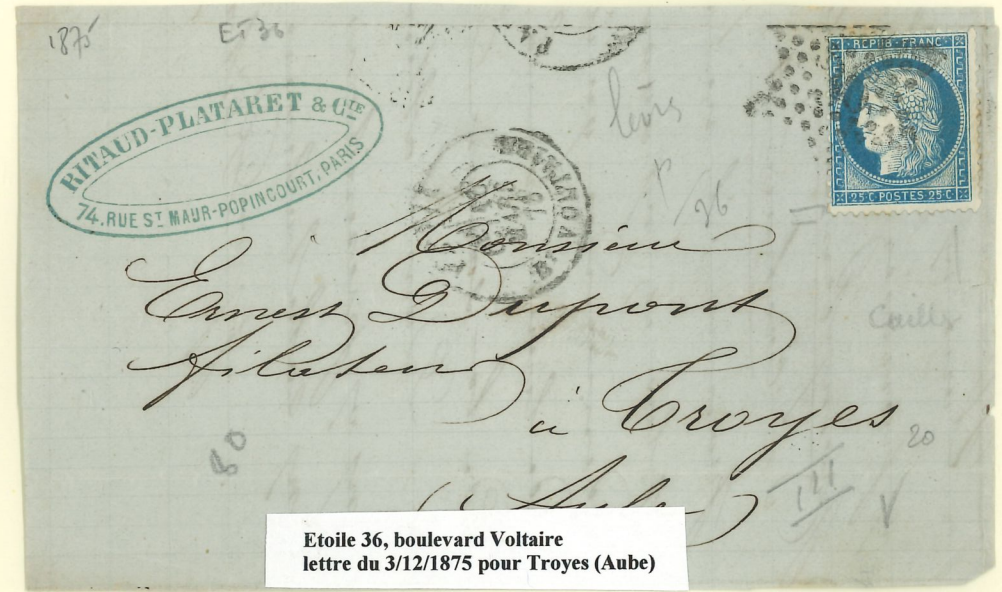 1875
ET 36
RITAUD-PLATARET & CIE
74, RUE ST MAUR-POPINCOURT, PARIS
REPUB · FRANC
25 · C POSTES 25 · C
P
26
Monsieur
Ernest Dupont
filateur
à Troyes
(Aube)
20
III
V
Etoile 36, boulevard Voltaire
lettre du 3/12/1875 pour Troyes (Aube)